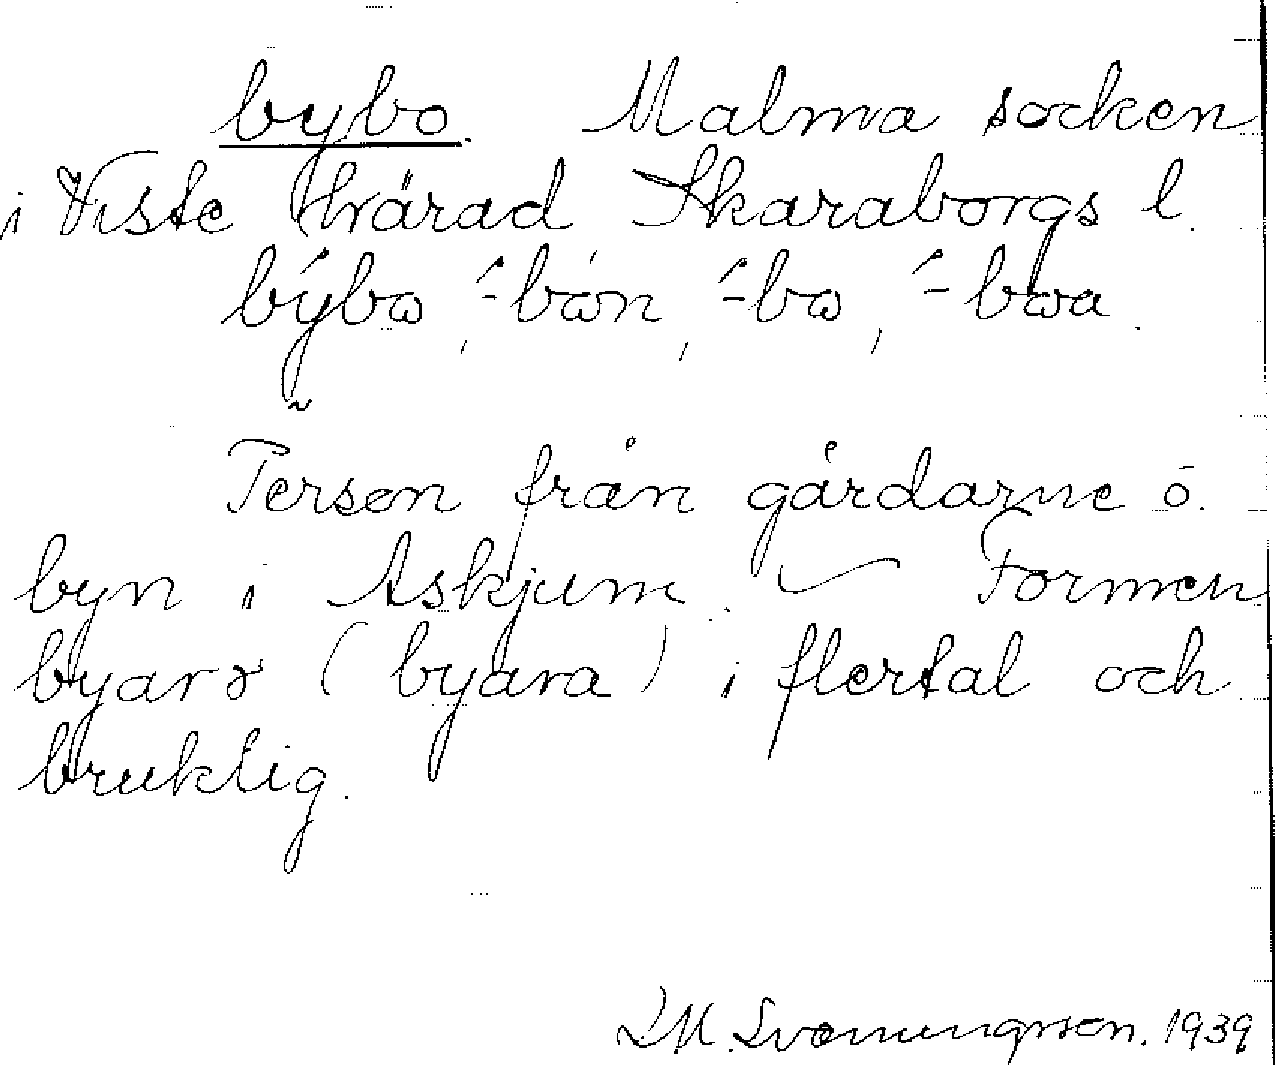 bybo. Malma socken
i Viste härad Skaraborgs l.
býbω, ´-bωn, ´-bω, ´-bωa.
Person från gårdarne ö.
byn i Askjum. — Formen
byarə (byara) i flertal och
bruklig.
L M. Svenningsson. 1939